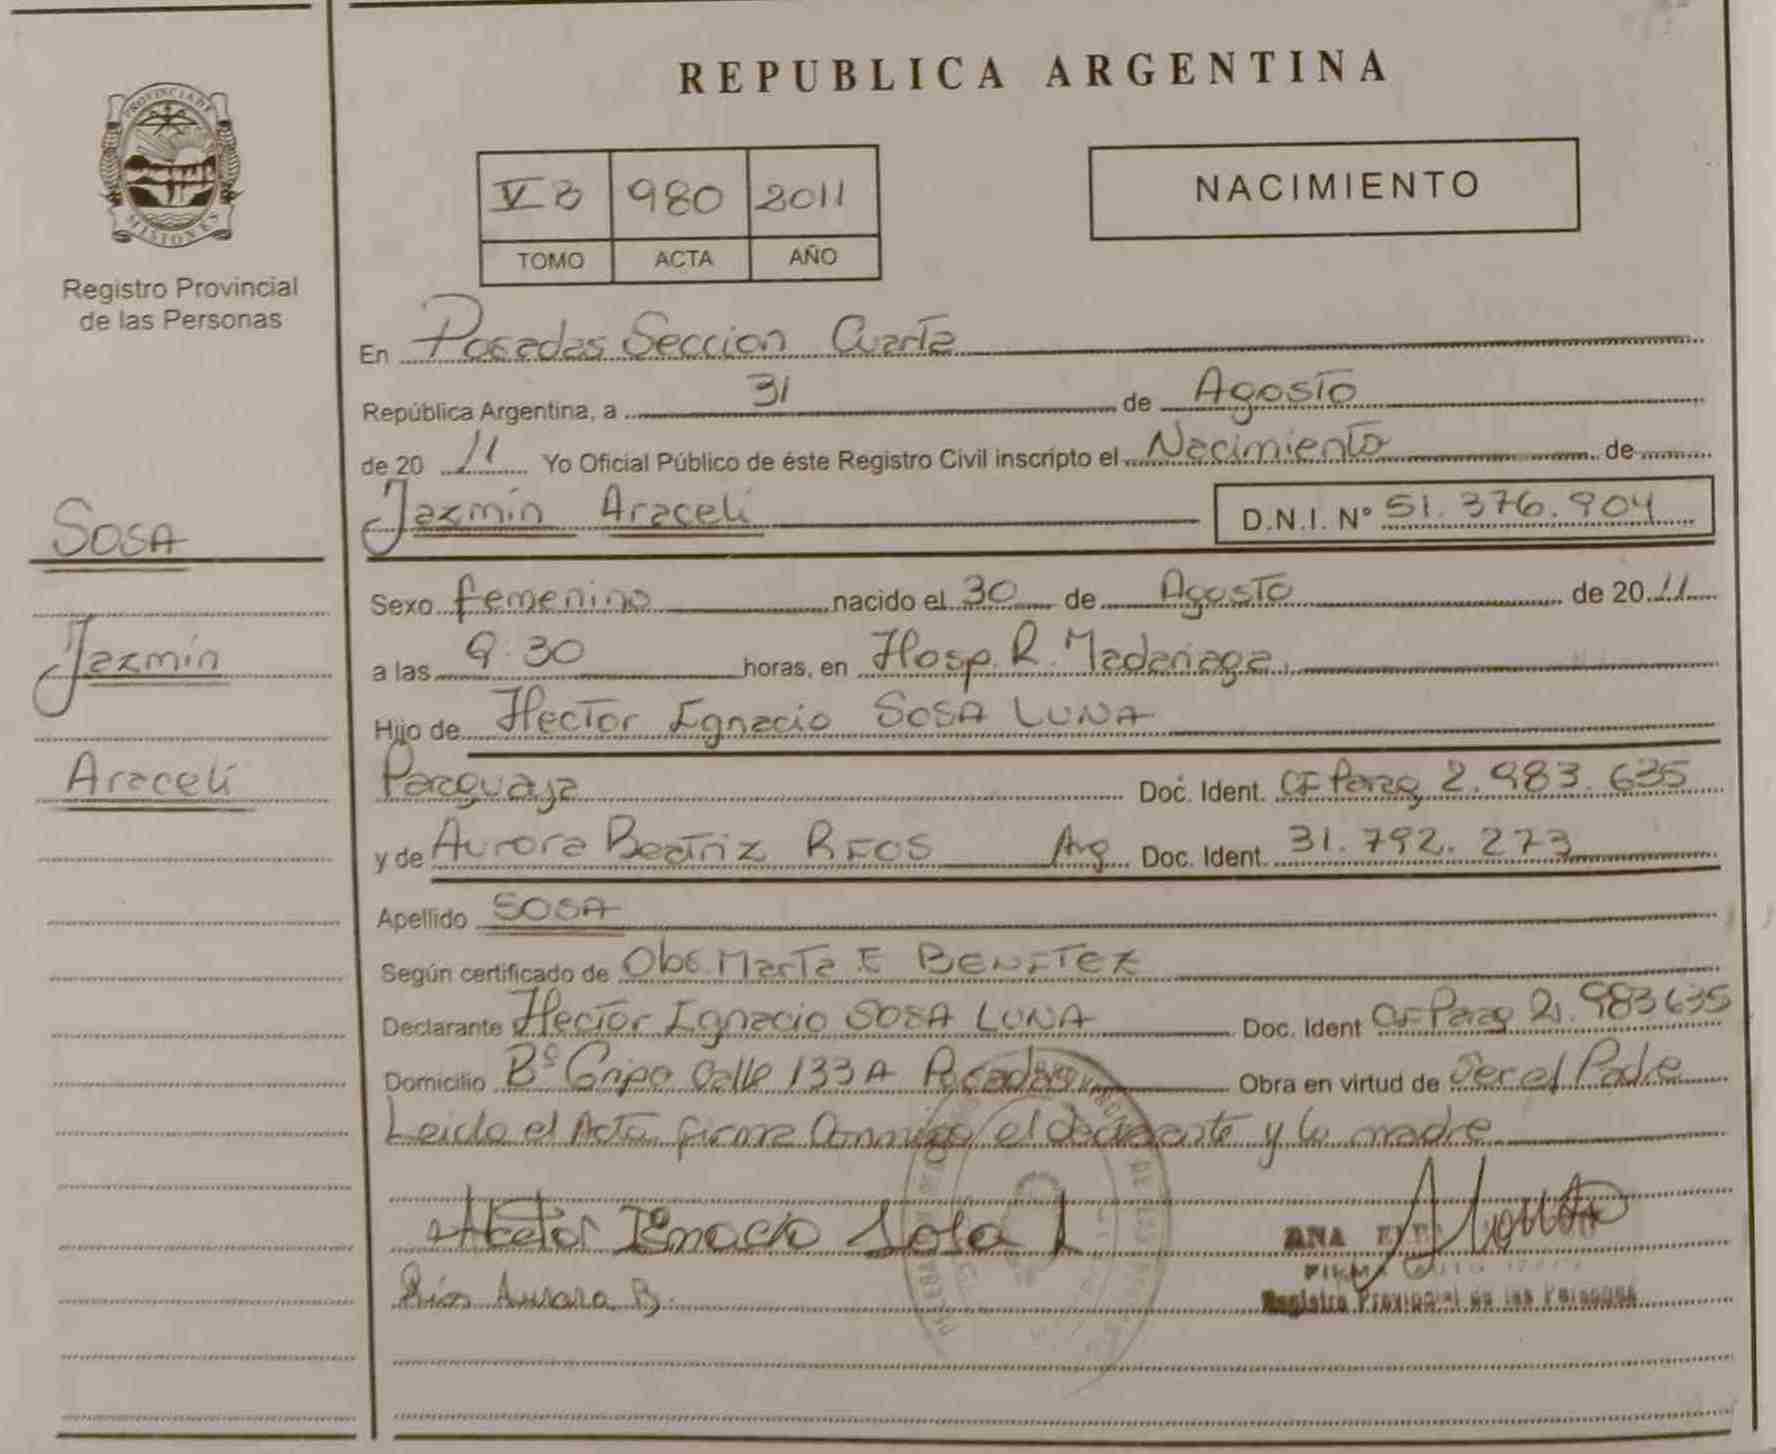 PROVINCIA DE
MISIONES
Registro Provincial
de las Personas
SOSA
Jazmín
Araceli
REPUBLICA ARGENTINA
V B 980 2011
TOMO ACTA AÑO
NACIMIENTO
En Posadas Seccion Cuarta
República Argentina, a 31 de Agosto
de 20 11 Yo Oficial Público de éste Registro Civil inscripto el Nacimiento de
Jazmín Araceli D.N.I. N° 51.376.904
Sexo femenino nacido el 30 de Agosto de 20 11
a las 9.30 horas, en Hosp. R. Madariaga
Hijo de Hector Ignacio SOSA LUNA
Paraguaya Doc. Ident. CI Parag 2.983.635
y de Aurora Beatriz RIOS Arg Doc. Ident. 31.792.273
Apellido SOSA
Según certificado de Obs. Marta E BENITEZ
Declarante Hector Ignacio SOSA LUNA Doc. Ident CI Parag 2.983635
Domicilio Bº Calle 133 A Posadas Obra en virtud de Ser el Padre
Leido el Acta firma Conmigo el declarante y la madre
Hector Ignacio Sosa L
Ríos Aurora B.
ANA
Registro Provincial de las Personas